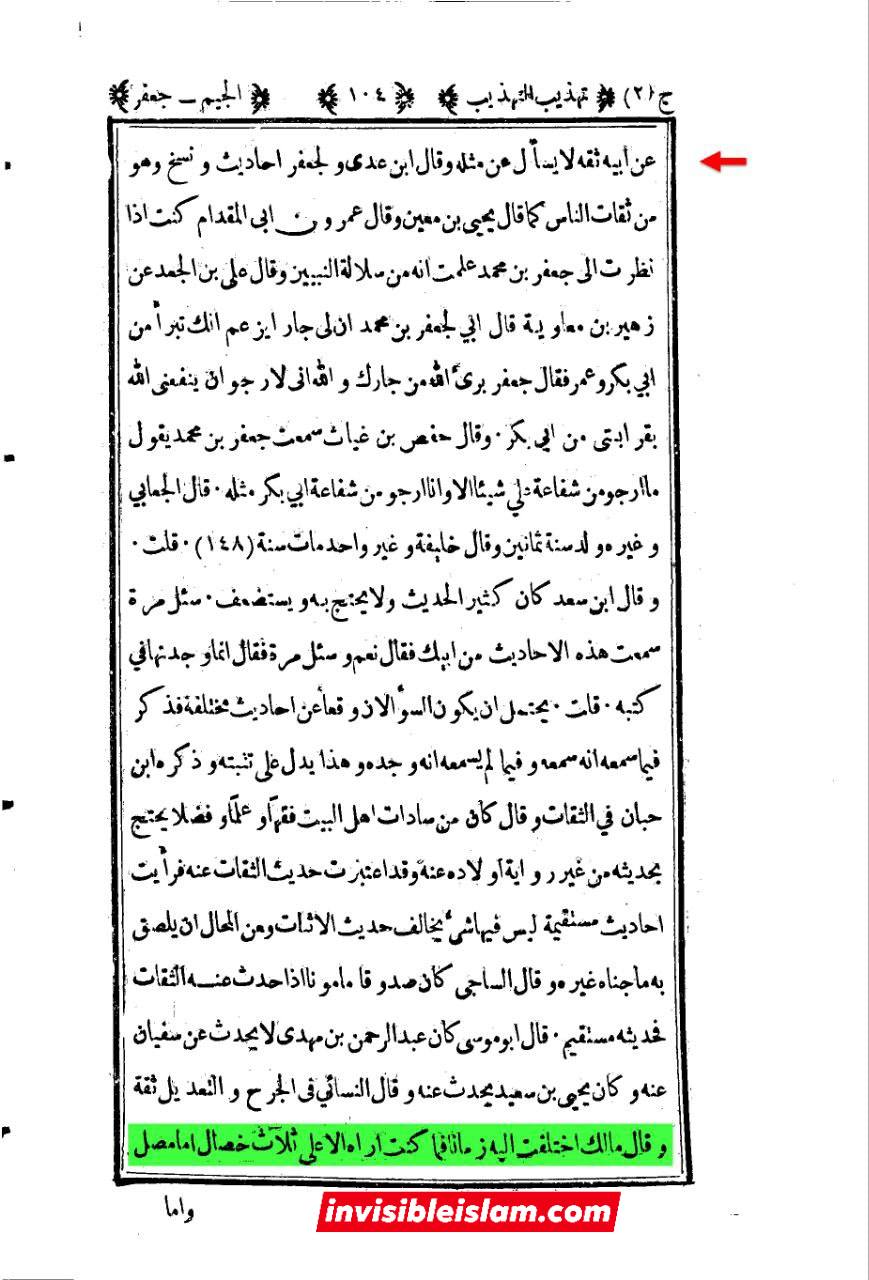 ج (٢) ﴿ تهذيب التهذيب ﴾ ﴿ ١٠٤ ﴾ ﴿ الجيم ـ جعفر ﴾
عن أبيه ثقه لا يسأل عن مثله وقال ابن عدى ولجعفر احاديث و نسخ وهو
من ثقات الناس كما قال يحيى بن معين وقال عمرو بن ابى المقدام كنت اذا
نظرت الى جعفر بن محمد علمت انه من سلالة النبيين وقال على بن الجعد عن
زهير بن معاوية قال ابي لجعفر بن محمد ان لى جارا يزعم انك تبرأ من
ابي بكر وعمر فقال جعفر برئ الله من جارك و الله انى لارجوان ينفعنى الله
بقرابتى من ابي بكر · وقال حفص بن غياث سمعت جعفر بن محمد يقول
ما ارجو من شفاعة علي شيئا الا وانا ارجو من شفاعة ابي بكر مثله · قال الجعابي
و غيره ولد سنة ثمانين وقال خليفة و غير واحد مات سنة (١٤٨) · قلت ·
و قال ابن سعد كان كثير الحديث ولا يحتج به و يستضعف · سئل مرة
سمعت هذه الاحاديث من ابيك فقال نعم و سئل مرة فقال انما وجدتها في
كتبه · قلت · يحتمل ان يكون السؤالان وقعا عن احاديث مختلفة فذكر
فيما سمعه انه سمعه و فيما لم يسمعه انه وجده و هذا يدل على تثبته و ذكره ابن
حبان في الثقات و قال كان من سادات اهل البيت فقها و علما و فضلا يحتج
بحديثه من غير رواية اولاده عنه وقد اعتبرت حديث الثقات عنه فرأيت
احاديث مستقيمة ليس فيها شئ يخالف حديث الاثبات ومن المحال ان يلصق
به ما جناه غيره و قال الساجى كان صدوقا مامونا اذا حدث عنه الثقات
فحديثه مستقيم · قال ابو موسى كان عبد الرحمن بن مهدى لا يحدث عن سفيان
عنه و كان يحيى بن سعيد يحدث عنه و قال النسائي فى الجرح و التعديل ثقة
و قال مالك اختلفت اليه زمانا فما كنت اراه الا على ثلاث خصال اما مصل
واما
invisibleislam.com